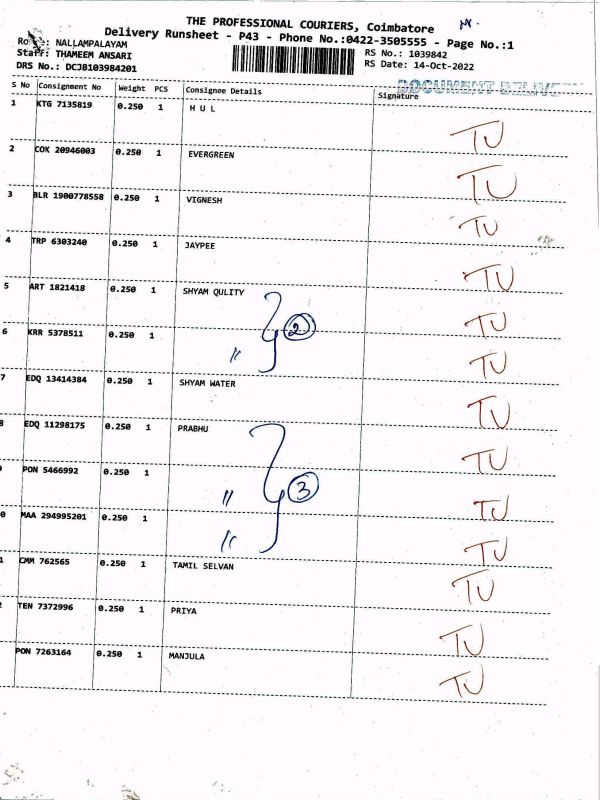 THE PROFESSIONAL COURIERS, Coimbatore
Delivery Runsheet - P43 - Phone No.:0422-3505555 - Page No.:1
Route: NALLAMPALAYAM
RS No.: 1039842
Staff: THAMEEM ANSARI
RS Date: 14-Oct-2022
DRS No.: DCJB103984201
DOCUMENT DELIV
S No Consignment No Weight PCS Consignee Details Signature
1 KTG 7135819 0.250 1 H U L TU
2 COK 20946003 0.250 1 EVERGREEN TU
3 BLR 1900778558 0.250 1 VIGNESH TU
4 TRP 6303240 0.250 1 JAYPEE TU
5 ART 1821418 0.250 1 SHYAM QULITY 2 TU
6 KRR 5378511 0.250 1 " TU
7 EDQ 13414384 0.250 1 SHYAM WATER TU
8 EDQ 11298175 0.250 1 PRABHU TU
PON 5466992 0.250 1 " 3 TU
0 MAA 294995201 0.250 1 " TU
1 CMM 762565 0.250 1 TAMIL SELVAN TU
2 TEN 7372996 0.250 1 PRIYA TU
PON 7263164 0.250 1 MANJULA TU